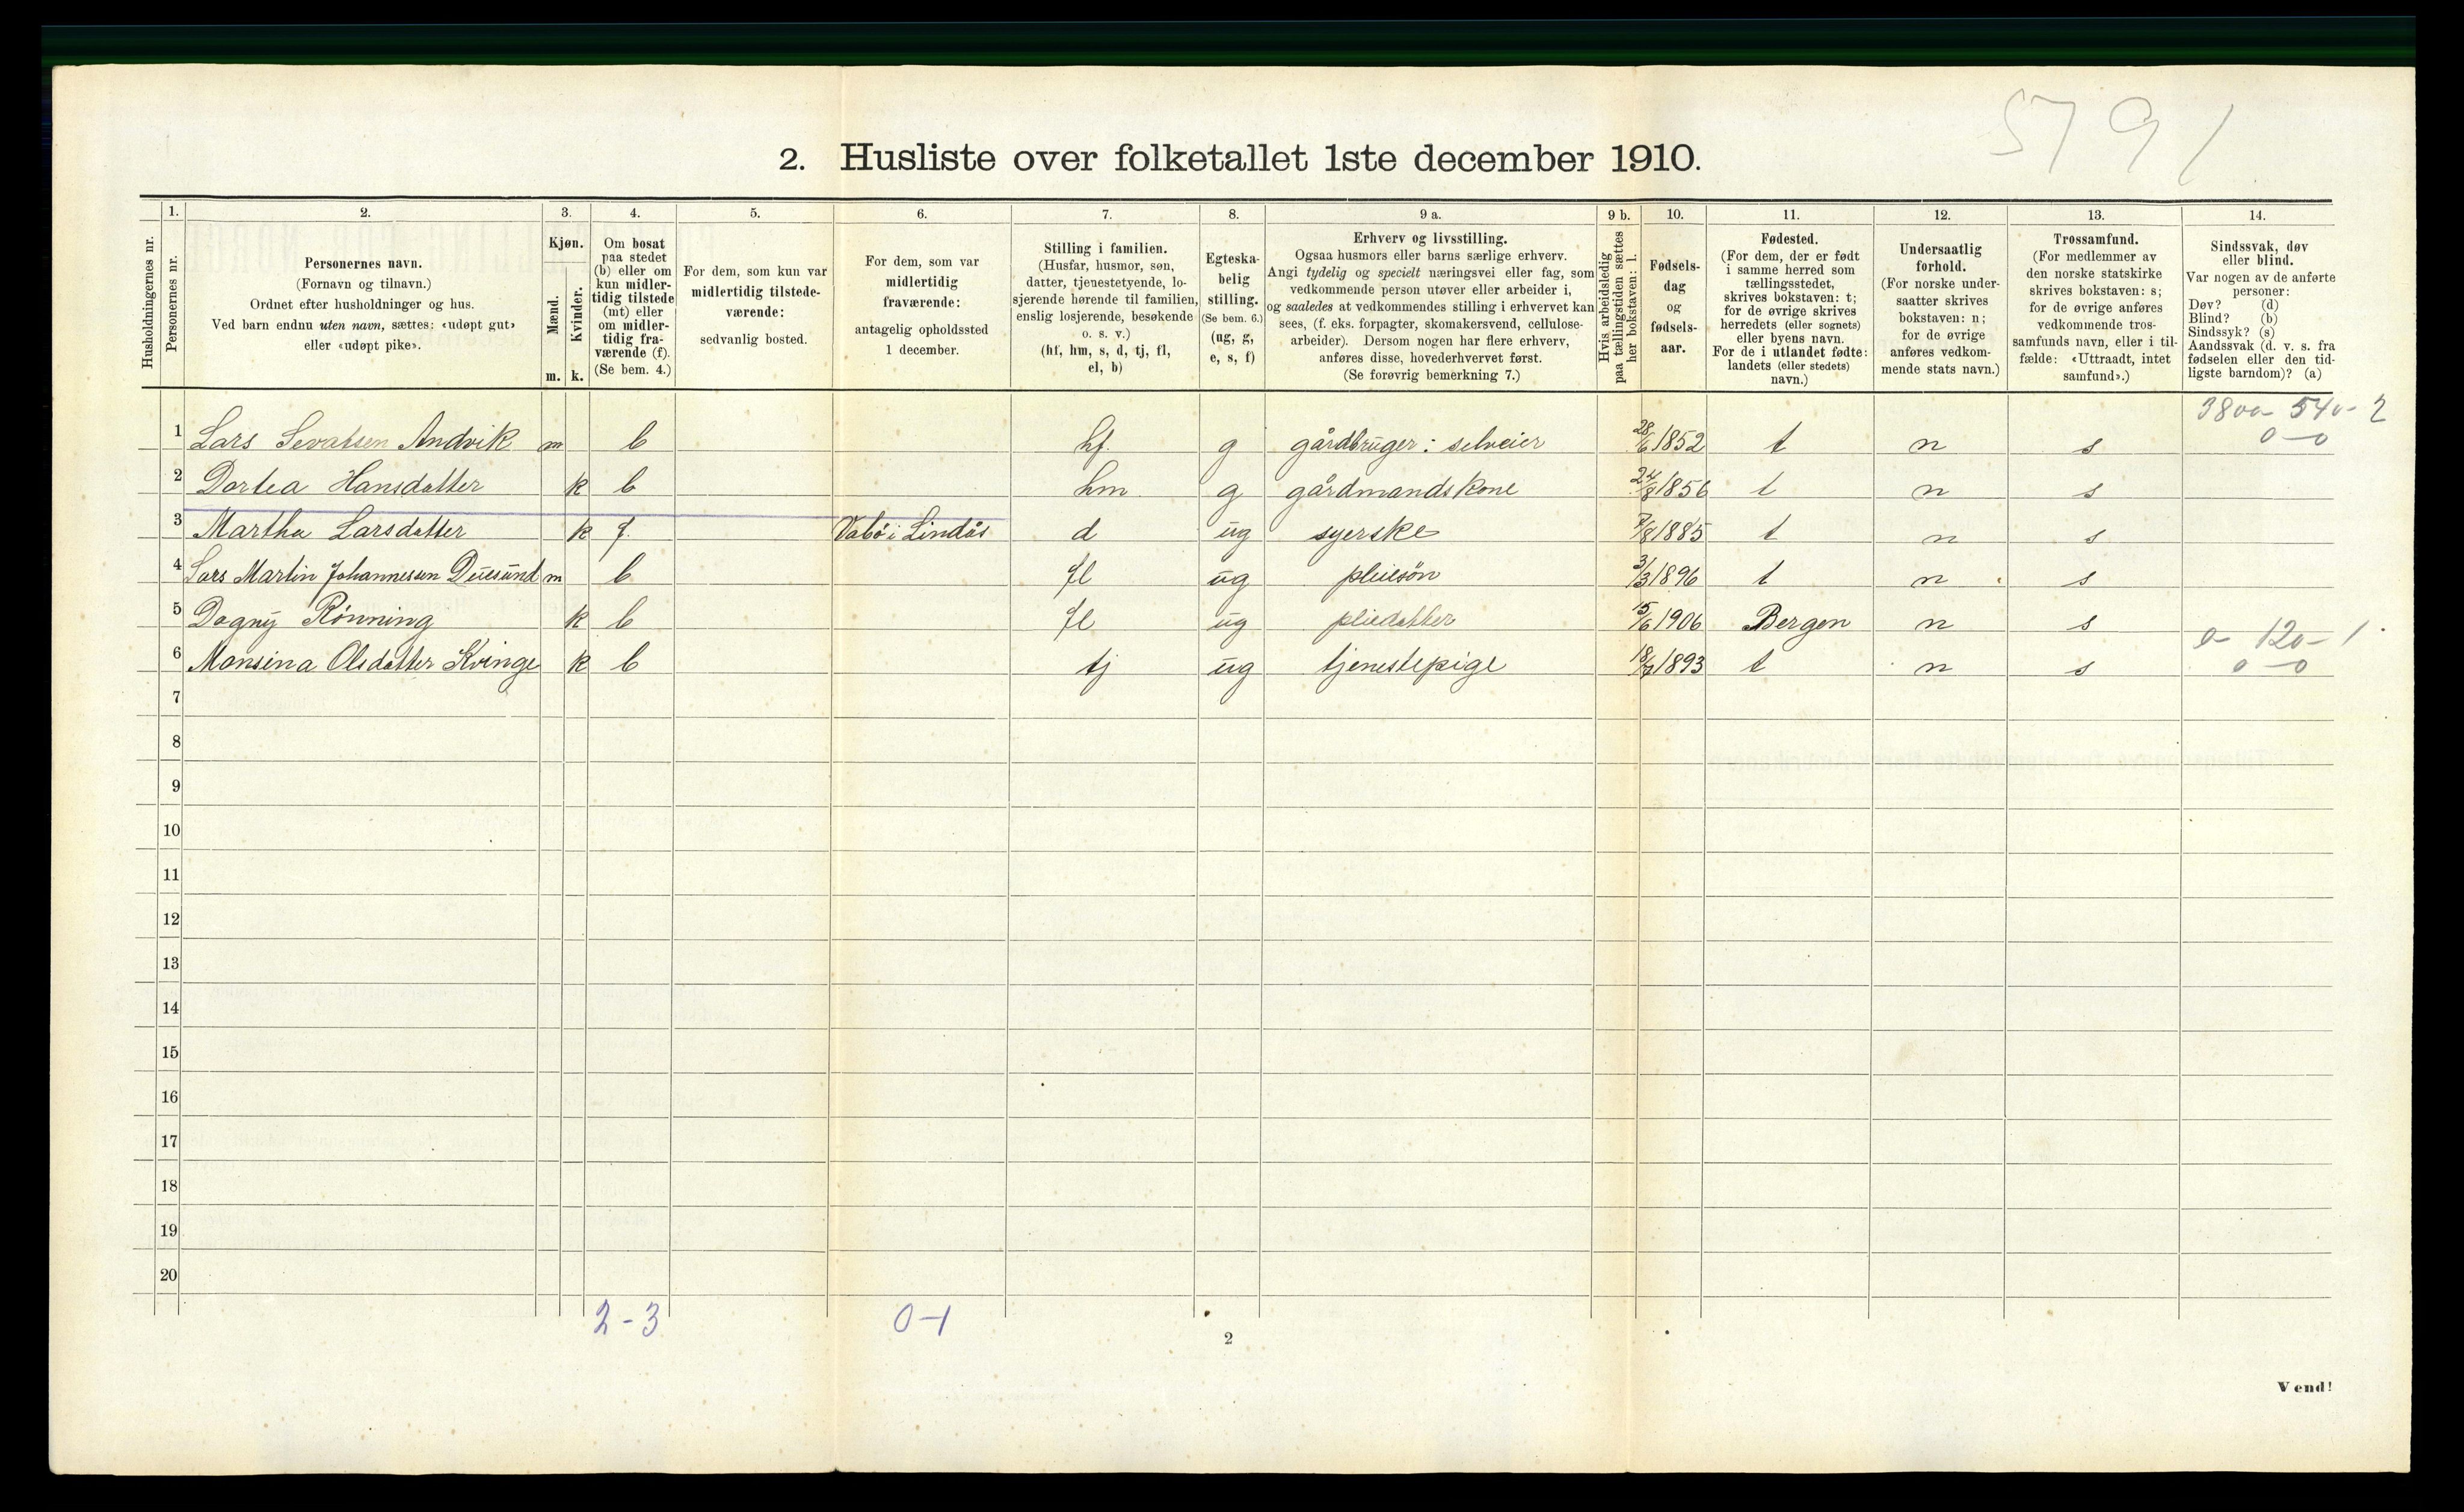 5791
2. Husliste over folketallet 1ste december 1910.
1. 2. 3. 4. 5. 6. 7. 8. 9 a. 9 b. 10. 11. 12. 13. 14.
Husholdningernes nr.
Personernes nr.
Personernes navn.
(Fornavn og tilnavn.)
Ordnet efter husholdninger og hus.
Ved barn endnu uten navn, sættes: «udøpt gut»
eller «udøpt pike».
Kjøn.
Mænd.
Kvinder.
m. k.
Om bosat
paa stedet
(b) eller om
kun midler-
tidig tilstede
(mt) eller
om midler-
tidig fra-
værende (f).
(Se bem. 4.)
For dem, som kun var
midlertidig tilstede-
værende:
sedvanlig bosted.
For dem, som var
midlertidig
fraværende:
antagelig opholdssted
1 december.
Stilling i familien.
(Husfar, husmor, søn,
datter, tjenestetyende, lo-
sjerende hørende til familien,
enslig losjerende, besøkende
o. s. v.)
(hf, hm, s, d, tj, fl,
el, b)
Egteska-
belig
stilling.
(Se bem. 6.)
(ug, g,
e, s, f)
Erhverv og livsstilling.
Ogsaa husmors eller barns særlige erhverv.
Angi tydelig og specielt næringsvei eller fag, som
vedkommende person utøver eller arbeider i,
og saaledes at vedkommendes stilling i erhvervet kan
sees, (f. eks. forpagter, skomakersvend, cellulose-
arbeider). Dersom nogen har flere erhverv,
anføres disse, hovederhvervet først.
(Se forøvrig bemerkning 7.)
Hvis arbeidsledig
paa tællingstiden sættes
her bokstaven: l.
Fødsels-
dag
og
fødsels-
aar.
Fødested.
(For dem, der er født
i samme herred som
tællingsstedet,
skrives bokstaven: t;
for de øvrige skrives
herredets (eller sognets)
eller byens navn.
For de i utlandet fødte:
landets (eller stedets)
navn.)
Undersaatlig
forhold.
(For norske under-
saatter skrives
bokstaven: n;
for de øvrige
anføres vedkom-
mende stats navn.)
Trossamfund.
(For medlemmer av
den norske statskirke
skrives bokstaven: s;
for de øvrige anføres
vedkommende tros-
samfunds navn, eller i til-
fælde: «Uttraadt, intet
samfund».)
Sindssvak, døv
eller blind.
Var nogen av de anførte
personer:
Døv? (d)
Blind? (b)
Sindssyk? (s)
Aandssvak (d. v. s. fra
fødselen eller den tid-
ligste barndom)? (a)
3800- 540- 2
0-0
1 Lars Sevatsen Andvik m b hf. g gårdbruger: selveier 28/6 1852 t n s
2 Dortea Hansdatter k b hm g gårdmandskone 24/8 1856 t n s
3 Martha Larsdatter k f. Vabö i Lindås d ug syerske 7/8 1885 t n s
4 Lars Martin Johannessen Duesund m b fl ug pleiesön 3/3 1896 t n s
5 Dagny Rönning k b fl ug pliedatter 15/6 1906 Bergen n s
0- 120- 1
6 Monsina Olsdatter Kvinge k b tj ug tjenestepige 18/7 1893 t n s 0-0
7
8
9
10
11
12
13
14
15
16
17
18
19
20
2-3 0-1
2
Vend!